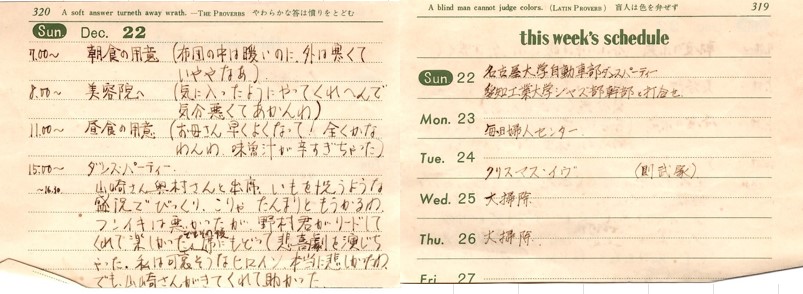 320 A soft answer turneth away wrath. —THE PROVERBS やわらかな答は憤りをとどむ
Sun Dec. 22
7.00〜 朝食の用意 (布団の中は暖いのに、外は寒くて
いややなあ)
8.00〜 美容院へ (気に入ったようにやってくれへんで
気分悪くてあかんわ)
11.00〜 昼食の用意 (お母さん早くよくなって! 全くかな
わんわ 味噌汁が辛すぎちゃった)
15.00〜 ダンスパーティー
〜16.30 山崎さん奥村さんと出席、いもを洗うような
盛況でびっくり、こりゃ たんまりともうかるわ。
フンイキは悪かったが、野村君がリードして
くれて楽しかった 席にもどって悲喜劇を演じち
ゃった。私は可哀そうなヒロイン 本当に悲しかったわ
でも山崎さんがきてくれて助かった。
A blind man cannot judge colors. (LATIN PROVERB) 盲人は色を弁せず 319
this week's schedule
Sun 22 名古屋大学自動車部ダンスパーティー
愛知工業大学ジャズ部幹部と打合せ
Mon. 23
毎日婦人センター
Tue. 24
クリスマス・イヴ (則武塚)
Wed. 25 大掃除
Thu. 26 大掃除
Fri. 27